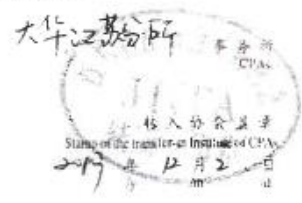 大华江苏分所
事务所
CPAs
转入协会盖章
Stamp of the transfer-in Institute of CPAs
2013年12月2日
/m /d